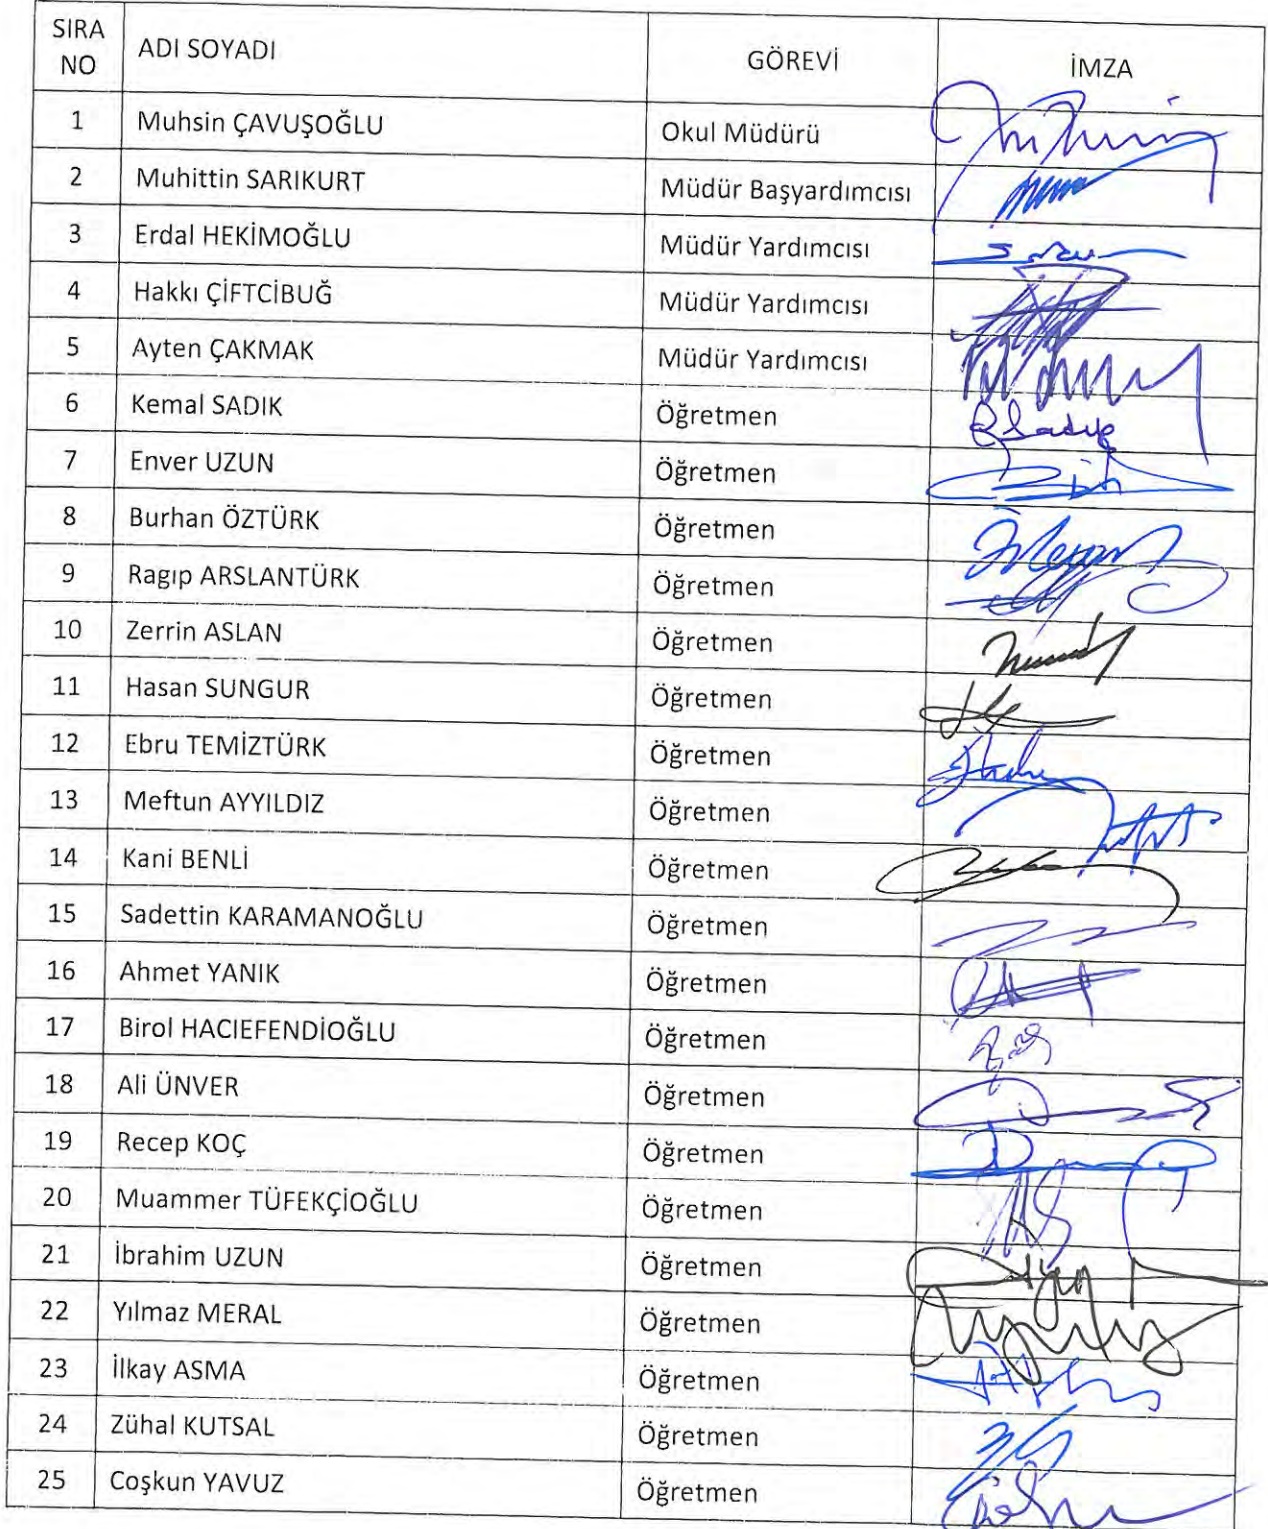 SIRA NO ADI SOYADI GÖREVİ İMZA
1 Muhsin ÇAVUŞOĞLU Okul Müdürü
2 Muhittin SARIKURT Müdür Başyardımcısı
3 Erdal HEKİMOĞLU Müdür Yardımcısı
4 Hakkı ÇİFTCİBUĞ Müdür Yardımcısı
5 Ayten ÇAKMAK Müdür Yardımcısı
6 Kemal SADIK Öğretmen
7 Enver UZUN Öğretmen
8 Burhan ÖZTÜRK Öğretmen
9 Ragıp ARSLANTÜRK Öğretmen
10 Zerrin ASLAN Öğretmen
11 Hasan SUNGUR Öğretmen
12 Ebru TEMİZTÜRK Öğretmen
13 Meftun AYYILDIZ Öğretmen
14 Kani BENLİ Öğretmen
15 Sadettin KARAMANOĞLU Öğretmen
16 Ahmet YANIK Öğretmen
17 Birol HACIEFENDİOĞLU Öğretmen
18 Ali ÜNVER Öğretmen
19 Recep KOÇ Öğretmen
20 Muammer TÜFEKÇİOĞLU Öğretmen
21 İbrahim UZUN Öğretmen
22 Yılmaz MERAL Öğretmen
23 İlkay ASMA Öğretmen
24 Zühal KUTSAL Öğretmen
25 Coşkun YAVUZ Öğretmen